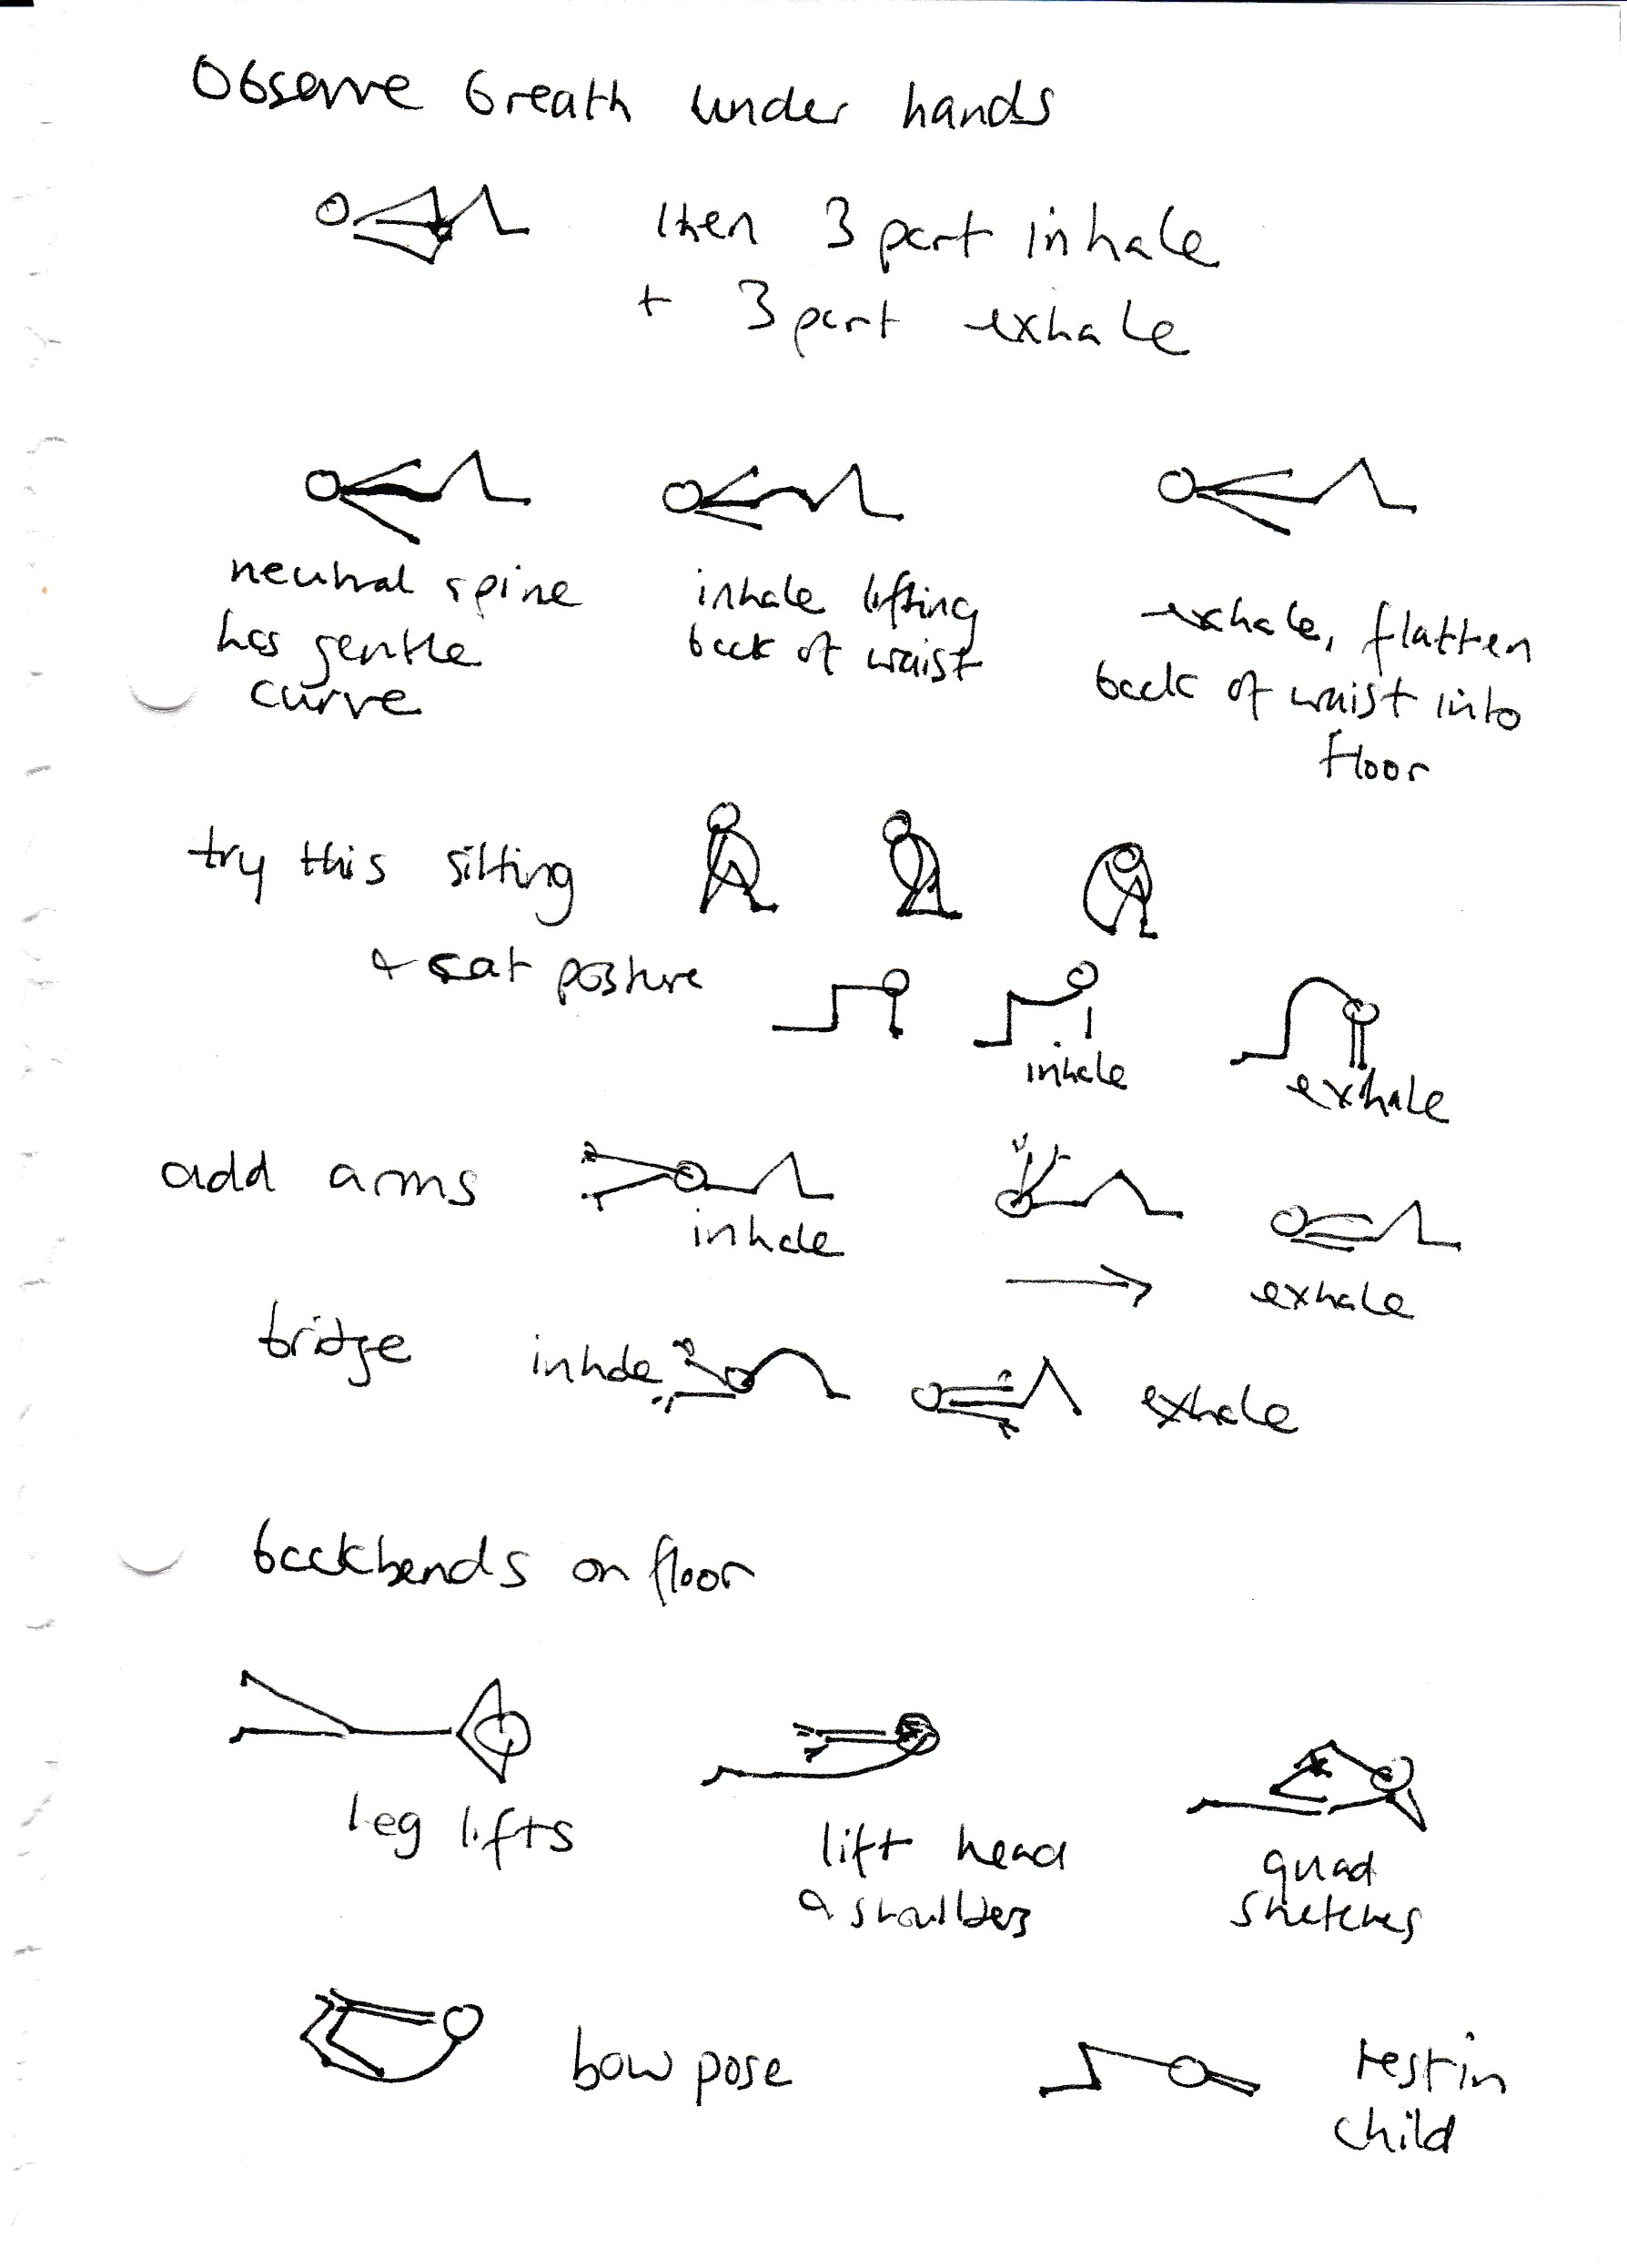 Observe breath under hands
then 3 part inhale
+ 3 part exhale
neutral spine
has gentle
curve
inhale lifting
back of waist
exhale, flatten
back of waist into
floor
try this sitting
+ cat posture
inhale
exhale
add arms
inhale
exhale
bridge
inhale
exhale
backbends on floor
leg lifts
lift head
& shoulders
quad
stretches
bow pose
rest in
child